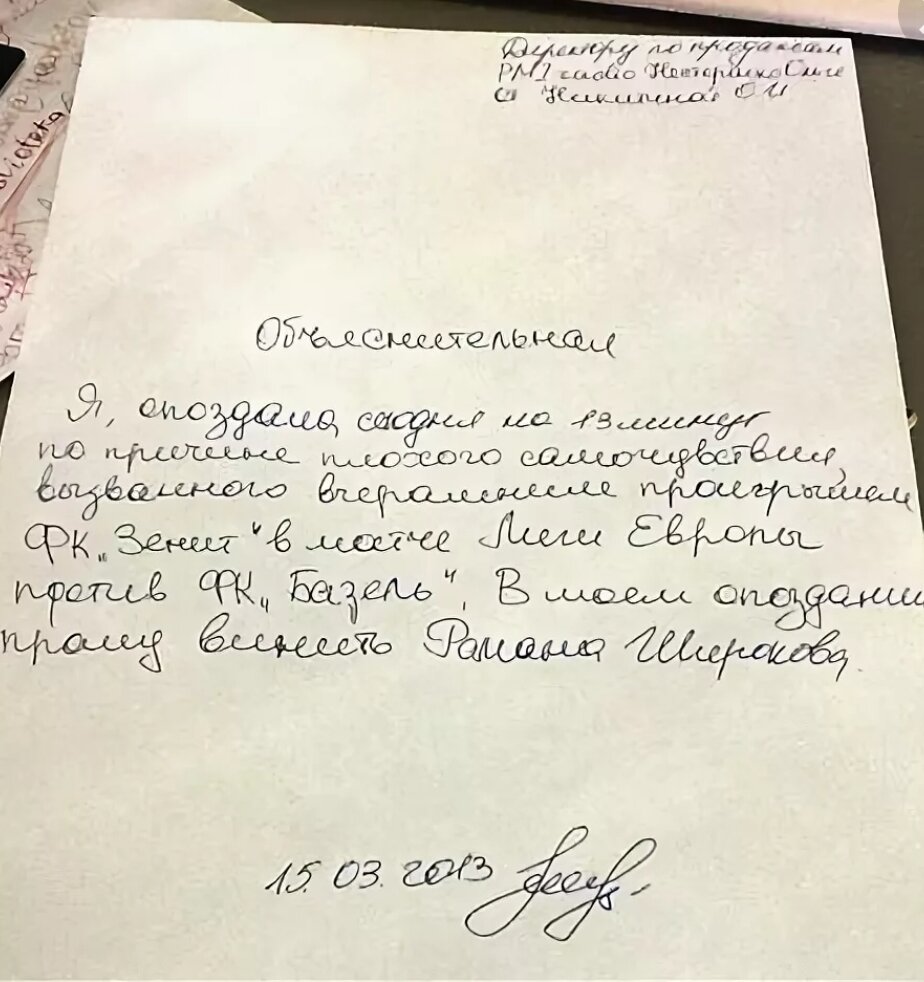 Директору по продажам
от Никитиной О И
Объяснительная
Я, опоздала сегодня на 13 минут
по причине плохого самочувствия,
вызванного вчерашним проигрышем
ФК „Зенит“ в матче Лиги Европы
против ФК „Базель“. В моем опоздании
прошу винить Романа Широкова.
15.03.2013